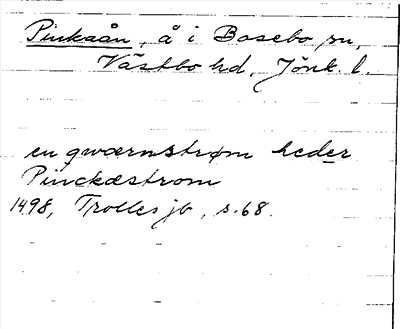 Pinkaån, å i Bosebo sn,
Västbo hd, Jönk. l.
en qwærnstrøm heder
Pinckæstrom
1498, Trolles jb, s. 68.